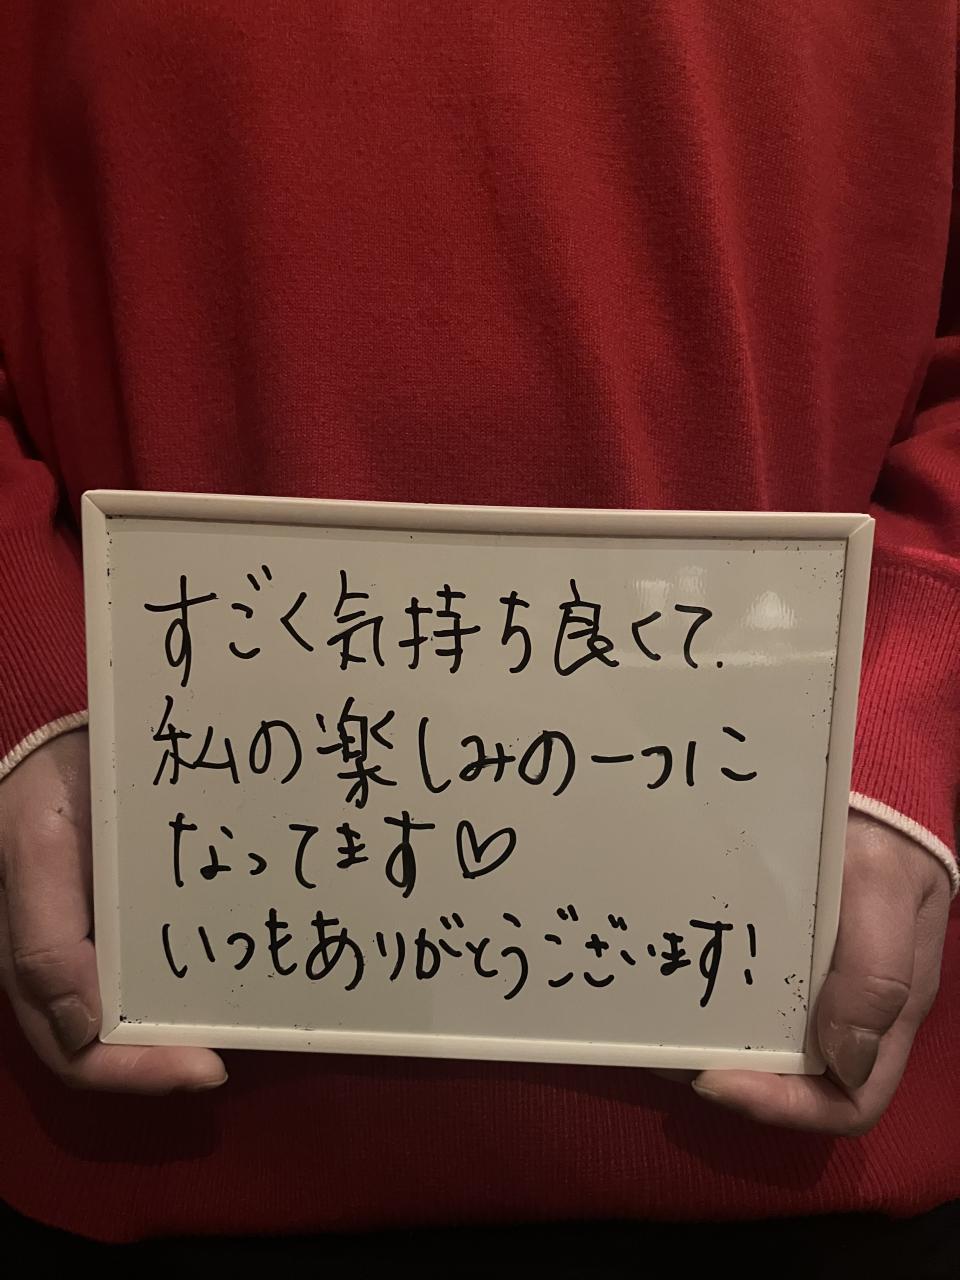 すごく気持ち良くて.
私の楽しみの一つに
なってます♡
いつもありがとうございます!